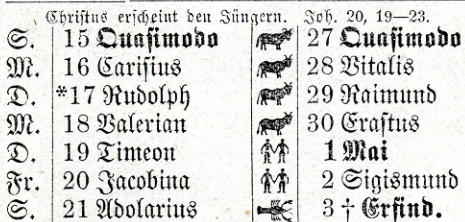 Christus erscheint den Jüngern. Joh. 20, 19—23.
S. 15 Quasimodo 27 Quasimodo
M. 16 Carisius 28 Vitalis
D. *17 Rudolph 29 Raimund
M. 18 Valerian 30 Erastus
D. 19 Timeon 1 Mai
Fr. 20 Jacobina 2 Sigismund
S. 21 Adolarius 3 † Erfind.